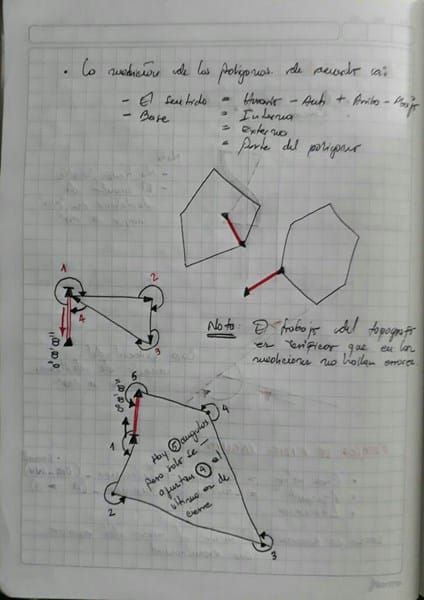 . La medición de los poligonos de acuerdo su:
- El sentido = Horario - Anti + Arriba - Abajo
- Base = Interna
= externa
= Parte del poligono
1
2
4
3
0° 0' 0"
Nota: El trabajo del topografo
es verificar que en las
mediciones no hallan errores
5
0° 0' 0"
4
1
Hay 5 angulos
pero solo se
ajustan 4 el
ultimo es de
cierre
2
3